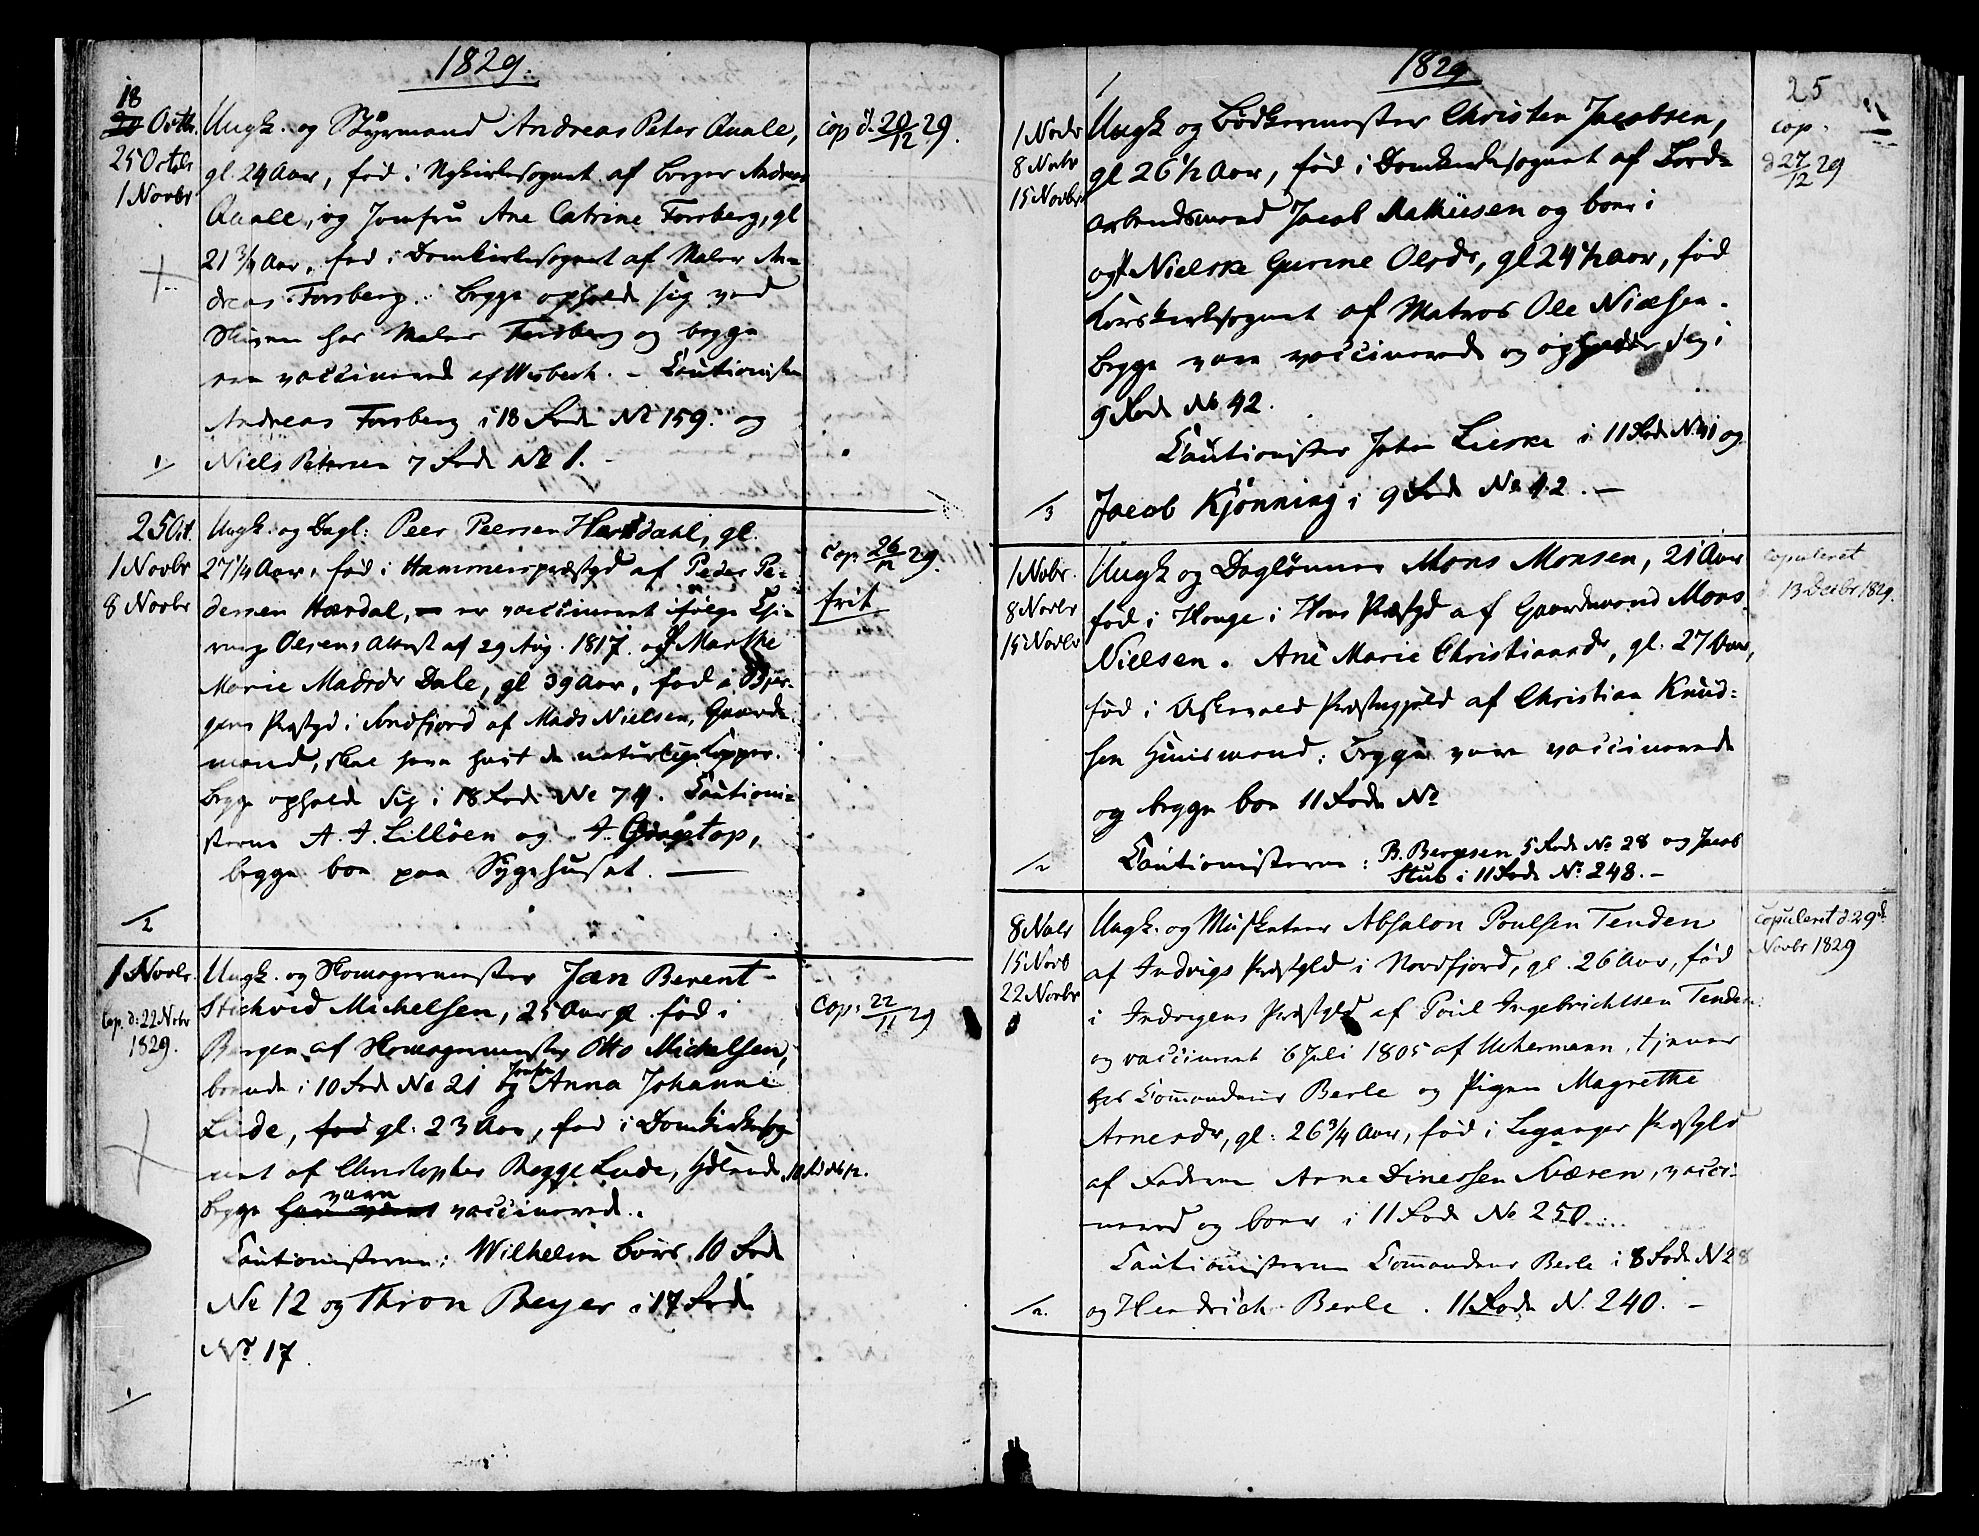 1829.
18
20 Octbr.
25 Octbr
1 Novbr
Ungk. og Styrmand Andreas Peter Quale,
gl. 24 Aar, fød i Nykirkesognet af Borger Andreas
Quale, og Jomfru Ane Catrine Forsberg, gl
21 3/4 Aar, fød i Domkirkesognet af Maler An-
dreas Forsberg. Begge opholde sig ved
hos Maler Forsberg og begge
ere vaccinerede af Wesbech. – Cautionister
Andreas Forsberg i 18 Rode No 159. og
Niels Petersen 7 Rode No 1. –
cop d. 20/12 29.
1/
25 Oct.
1 Novbr
8 Novbr
Ungk. og Dagl: Peer Peersen Hardahl, gl.
27 1/4 Aar, fød i Hammers præstgd af Peder Pe-
dersen Hærdal, er vaccineret ifølge
Olsens Attest af 29 Aug. 1817. og P Marthe
Marie Madsdr Dale, gl 39 Aar, fød i
Præstgd i Sundfjord af Mads Nielsen, Gaard-
mand, skal have havt de naturlige Kopper.
Begge opholde sig i 18 Rode No 74. Cautioni-
sterne A. A. Lilløen og A.
begge boe paa Sygehuset. —
Cop. 26/12 29.
frit
/2
1 Novbr.
Cop. d: 22 Novbr
1829.
Ungk. og Skomagermester Jan Berent
Stichvid Michelsen, 25 Aar gl. fød i
Bergen af Skomagermester Otto Michelsen,
boende i 10 Rode No 21 og Jomfru Anna Johanne
Lude, fød gl: 23 Aar, fød i Domkirkesog-
net af Christopher Begge Lude, 10 Rode No 12.
begge vare vaccinerede.
Cautionisterne: Wilhelm Börs 10 Rode
No 12 og Thron Beyer i 17 Rode
No 17.
Cop. 22/11 29
1/
1829
25
1 Novbr
8 Novbr
15 Novbr
Ungk og Bødkermester Christen Jacobsen,
gl 26 1/2 Aar, fød i Domkirkesognet af Bord-
arbeidsmand Jacob Mathiesen og boer i
og P Nielske Gurine Olesdr, gl 24 1/2 Aar, fød
Korskirkesognet af Matros Ole Nielsen.
begge vare vaccinerede og opholder sig i
9 Rode No 42.
Cautionister John Lieske i 11 Rode No 41 og
Jacob Kjönning i 9 Rode No 42. –
cop.
d 27/12 29
/3
1 Novbr.
8 Novbr
15 Novbr
Ungk og Daglønner Mons Monsen, 21 Aar
fød i Houge i Hous Præstgd af Gaardmand Mons
Nielsen. Ane Marie Christiansdr, gl. 27 Aar,
fød i Askevold Præstegjeld af Christian Knud-
sen Huusmand. Begge vare vaccinerede
og begge boe 11 Rode No
Cautionisterne: B. Bergesen 5 Rode No 28 og Jacob
Stub i 11 Rode No 248. –
copuleret
d. 13 Decbr 1829.
/2
8 Novbr
15 Novb
22 Novbr
Ungk. og Musketeer Absalon Poulsen Tenden
af Indvigs Præstgld i Nordfjord, gl. 26 Aar, fød
i Indvigens Præstgld af Poul Ingebrichtsen Tenden
og vaccineret 6 Juli 1805 af Uchermann, tjener
hos Commandeur Berle og Pigen Magrethe
Arnesdr, gl: 26 3/4 Aar, fød i Leganger Præstgld
af Faderen Arne Dinessen Næsen, vacci-
neered og boer i 11 Rode No 250.
Cautionisterne Commandeur Berle i 8 Rode N 28
og Hendrich Berle. 11 Rode N. 240. –
Copuleret d. 29d
Novbr 1829
/2.